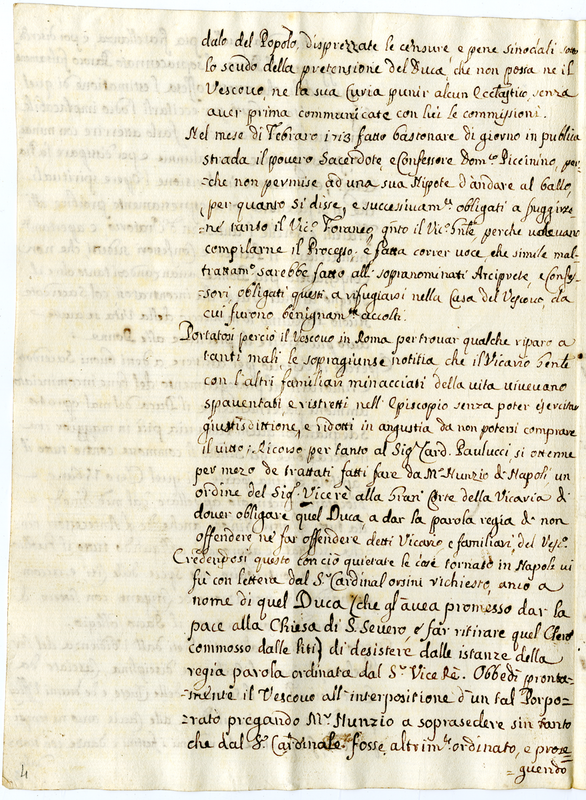 dalo del Popolo, disprezzate le censure e pene sinodali sotto
lo scudo della pretensione del Duca, che non possa ne il
Vescovo, ne la sua Curia punir alcun Ecclesiastico, senza
aver prima communicate con lui le commissioni.
Nel mese di Febraro 1713 fatto bastonare di giorno in publica
strada il povero Sacerdote e Confessore Dom.co Piccinino, per-
-che non permise ad una sua Nipote d'andare al ballo,
(per quanto si disse, e successivam.te obligati a fuggirse-
-ne tanto il Vic.o Foraneo, q.nto il Vic.o Gn̄le, perche volevano
compilarne il Processo, e fatta correr voce, che simile mal-
trattam.o sarebbe fatto alli sopranominati Arciprete, e Confes-
sori, obligati questi a rifugiarsi nella Casa del Vescovo, da
cui furono benignam.te accolti.
Portatosi perciò il Vescovo in Roma per trovar qualche riparo a
tanti mali, le sopragiunse notitia che il Vicario Gen̄le
con l'altri familiari minacciati della vita vivevano
spaventati, e ristretti nell'Episcopio senza poter esercitar
giustisdittione, e ridotti in angustia da non potersi comprare
il vitto; Ricorso per tanto al Sig.r Card. Paulucci si ottenne
per mezo de trattati fatti fare da M.r Nunzio di Napoli un
ordine del Sig.r Vicerè alla Gran Corte della Vicaria di
dover obligare quel Duca, a dar la parola regia di non
offendere ne far offendere detti Vicario e familiari del Vesc.o
Credendosi questo con ciò quietate le cose tornato in Napoli vi
fù con lettera dal S.r Cardinal Orsini richiesto, anco a
nome di quel Duca (che gl'avea promesso dar la
pace alla Chiesa di S. Severo, e far ritirare quel Clero
commosso dalle liti) di desistere dalle istanze della
regia parola ordinata dal S.r Vice Rè. Obbedì pronta-
-mente il Vescovo all'interpositione d'un tal Porpo-
-rato pregando M.r Nunzio a soprasedere sin tanto
che dal S.r Cardinale fosse altrim.ti ordinato, e prose-
=guendo
4